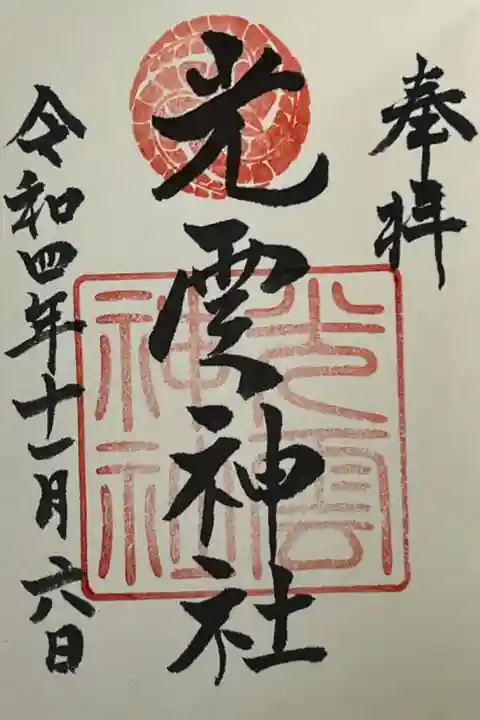 奉拝
光雲神社
光雲
神社
令和四年十一月六日